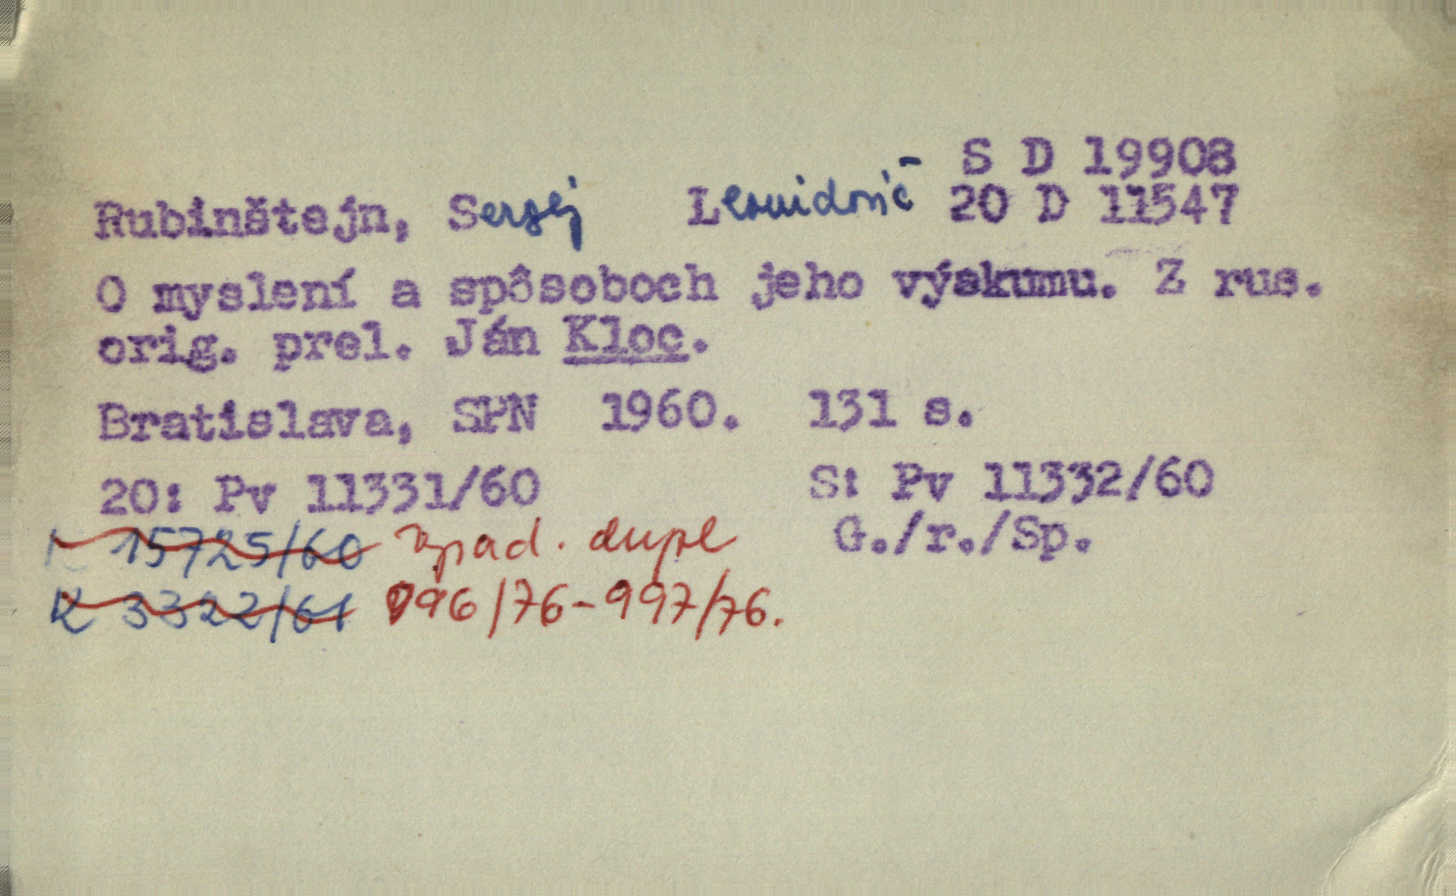 S D 19908
Rubinštejn, Sergej Leonidovič 20 D 11547
O myslení a spôsoboch jeho výskumu. Z rus.
orig. prel. Ján Kloc.
Bratislava, SPN 1960. 131 s.
20: Pv 11331/60 S: Pv 11332/60
K 15725/60 vyrad. dupl G./r./Sp.
K 3322/61 996/76-997/76.